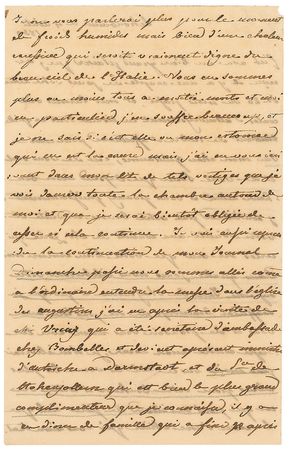 Je ne vous parlerai plus pour le moment
de froid humides mais bien d'une chaleur
excessive qui seroit vraiment digne du
beau ciel de l'Italie. Nous en sommes
plus ou moins tous a moitié morts et moi
en particulier j'en souffre beaucoup, et
je ne sais si c'est elle ou mon estomac
qui en est la cause mais j'ai en vous
vant dans mon lit de tels vertiges que je
vois danser toute la chambre autour de
moi et que je serai bientot obligée de
cesser si cela continue. Je vais aussi
de la continuation de mon Journal
Dimanche passé nous sommes allés comme
a l'ordinaire entendre la messe dans l'église
des augustins, j'ai eu après la visite de
Mr qui a été secretaire d'ambassade
chez Bombelles et devient apresent ministre
d'autriche a Darmstadt et
Hohenzollern qui est bien le plus grand
complimenteur que je connaisse, il y a
eu diner de famille qui a fini après